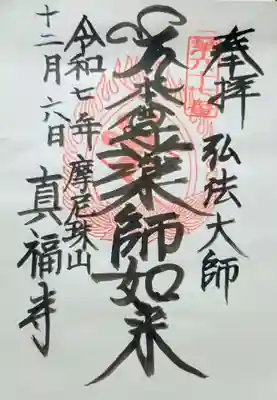 奉拝
弘法大師
本尊薬師如来
令和七年 摩尼珠山
十二月 六日 真福寺